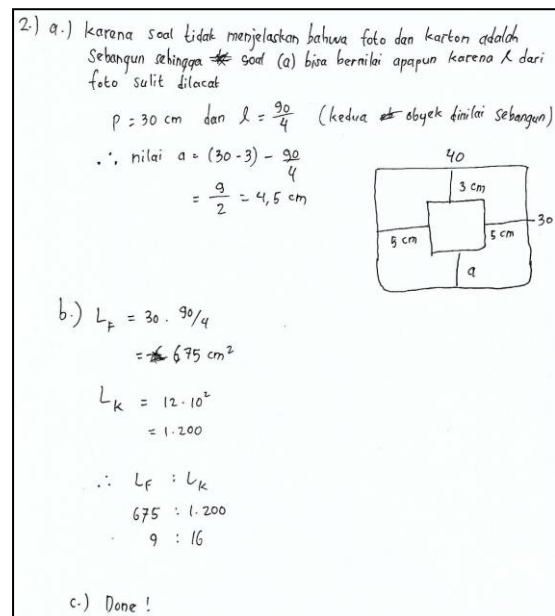 2.) a.) karena soal tidak menjelaskan bahwa foto dan karton adalah
sebangun sehingga soal (a) bisa bernilai apapun karena l dari
foto sulit dilacat
p = 30 cm dan l = 90/4 (kedua obyek dinilai sebangun)
∴ nilai a = (30-3) - 90/4
= 9/2 = 4,5 cm
40
3 cm
5 cm 5 cm 30
a
b.) L_F = 30 . 90/4
= 675 cm²
L_K = 12.10²
= 1.200
∴ L_F : L_K
675 : 1.200
9 : 16
c.) Done !